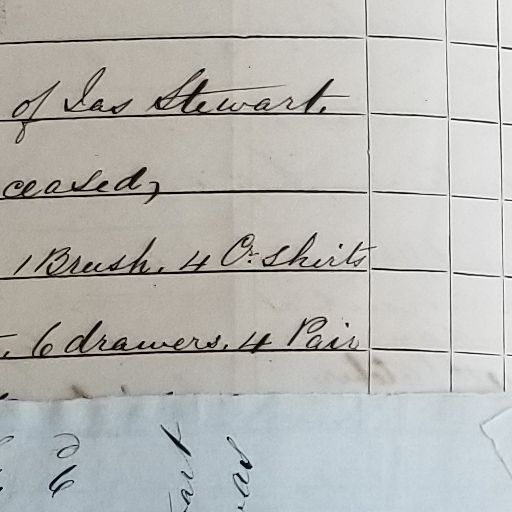 of Jas Stewart.
ceased,
1 Brush. 4 Or. Shirts
6 drawers. 4 Pair